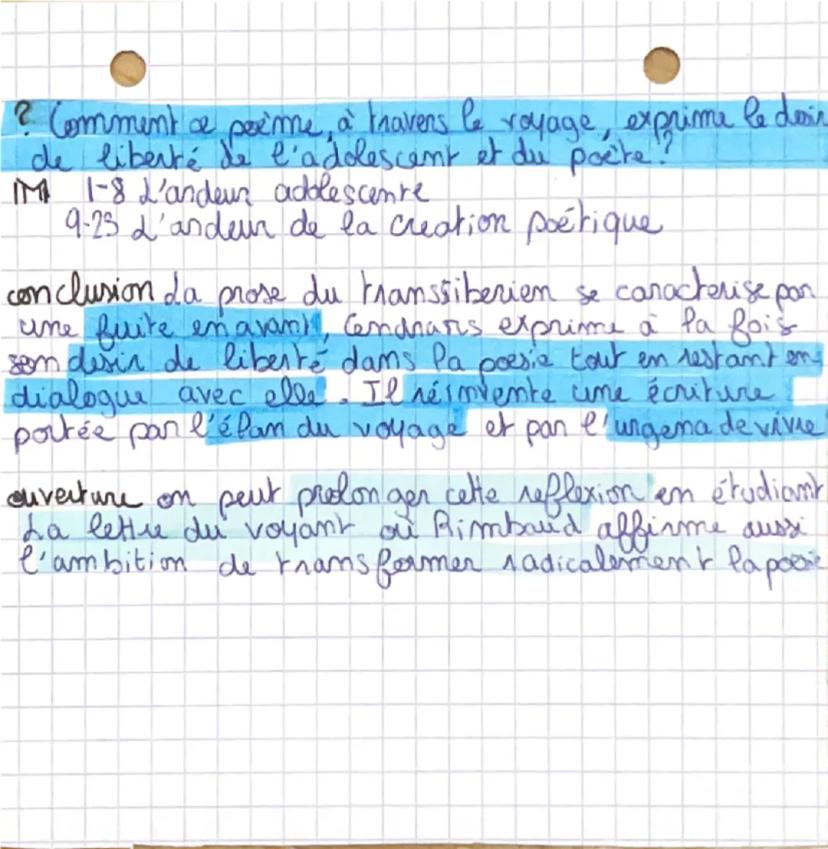 ? Comment ce poème, à travers le voyage, exprime le desir
de liberté de l'adolescent et du poète ?
M 1-8 L'ardeur adolescente
9-23 L'ardeur de la creation poétique
conclusion La prose du transsiberien se caracterise par
une fuite en avant, Cendrars exprime à la fois
son desir de liberté dans la poesie tout en restant en
dialogue avec elle. Il réinvente une écriture
portée par l'élan du voyage et par l'urgence de vivre
ouverture on peut prolonger cette reflexion en étudiant
La lettre du voyant où Rimbaud affirme aussi
l'ambition de transformer radicalement la poesie